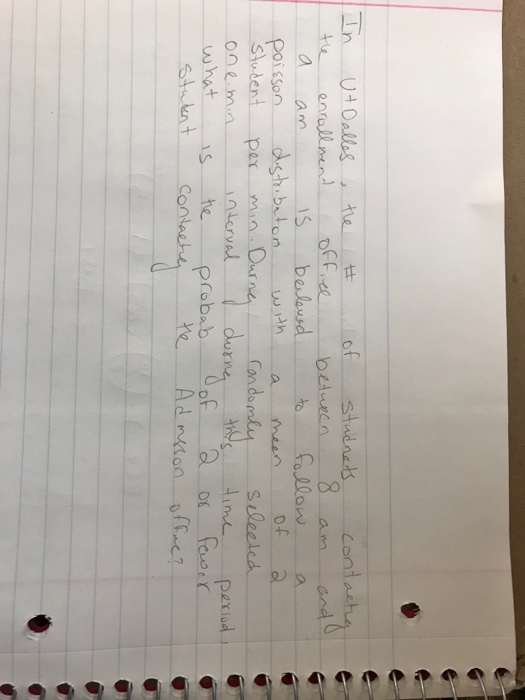 In UtDallas, the # of studnets contacting
the enrollment office between 8 am and
a am is beeleved to follow a
poisson distribution with a mean of 2
student per min. During randomly selected
one.min interval during this time period,
what is the probab of 2 or fewer
student contacting the Admisson office?